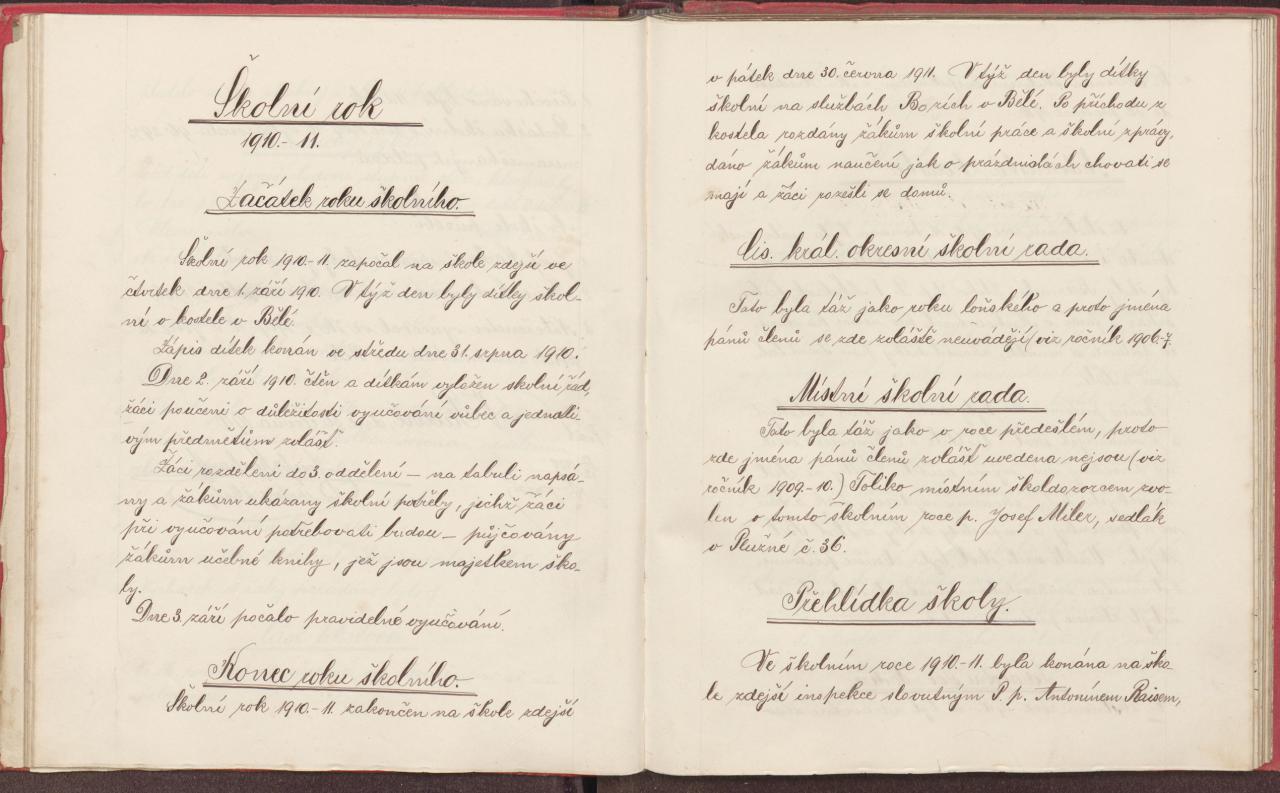 Školní rok
1910.- 11.
Začátek roku školního.
Školní rok 1910-11. započal na škole zdejší ve
čtvrtek dne 1. září 1910. V týž den byly dítky škol-
ní v kostele v Bělé.
Zápis dítek konán ve středu dne 31. srpna 1910.
Dne 2. září 1910. čten a dítkám vyložen školní řád,
žáci poučeni o důležitosti vyučování vůbec a jednotli-
vým předmětům zvlášť.
Žáci rozděleni do 3. oddělení — na tabuli napsá-
ny a žákům ukázany školní potřeby, jichž žáci
při vyučování potřebovati budou — půjčovány
žákům učebné knihy, jež jsou majetkem ško-
ly.
Dne 3. září počalo pravidelné vyučování.
Konec roku školního.
Školní rok 1910.-11. zakončen na škole zdejší
v pátek dne 30. června 1911. V týž den byly dítky
školní na službách Bozích v Bělé. Po příchodu z
kostela rozdány žákům školní práce a školní zprávy,
dáno žákům naučení jak o prázdninách chovati se
mají a žáci rozešli se domů.
Cis. král. okresní školní rada.
Tato byla táž jako roku loňského a proto jména
pánů členů se zde zvláště neuvádějí (viz ročník 1906-7.
Místní školní rada.
Tato byla táž jako v roce předešlém, proto
zde jména pánů členů zvlášť uvedena nejsou (viz
ročník 1909.-10.) Toliko místním školdozorcem zvo-
len v tomto školním roce p. Josef Miler, sedlák
v Plužné č. 36.
Přehlídka školy.
Ve školním roce 1910.-11. byla konána na ško-
le zdejší inspekce slovutným P. p. Antonínem Raisem,